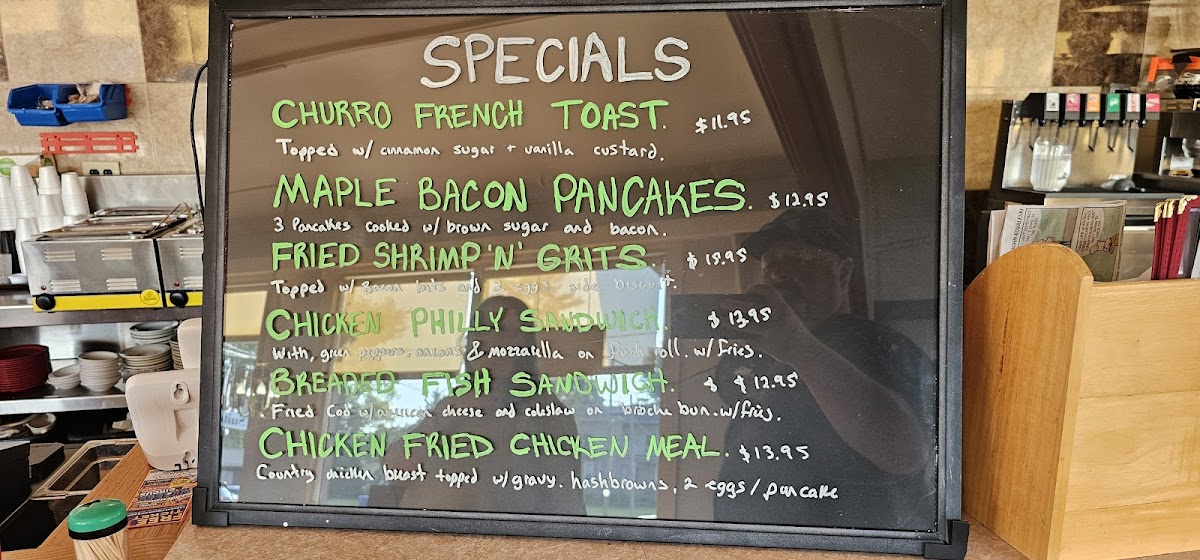 SPECIALS
CHURRO FRENCH TOAST. $11.95
Topped w/ cinnamon sugar + vanilla custard.
MAPLE BACON PANCAKES. $12.95
3 Pancakes cooked w/ brown sugar and bacon.
FRIED SHRIMP 'N' GRITS. $15.95
Topped w/ Bacon bits and 2 eggs side biscuit.
CHICKEN PHILLY SANDWICH. $13.95
With, green peppers, onions & mozzarella on french roll. w/ fries.
BREADED FISH SANDWICH. $ $12.95
Fried Cod w/ american cheese and coleslaw on brioche bun. w/ fries.
CHICKEN FRIED CHICKEN MEAL. $13.95
Country chicken breast topped w/ gravy. hashbrowns, 2 eggs / pancake
FREE